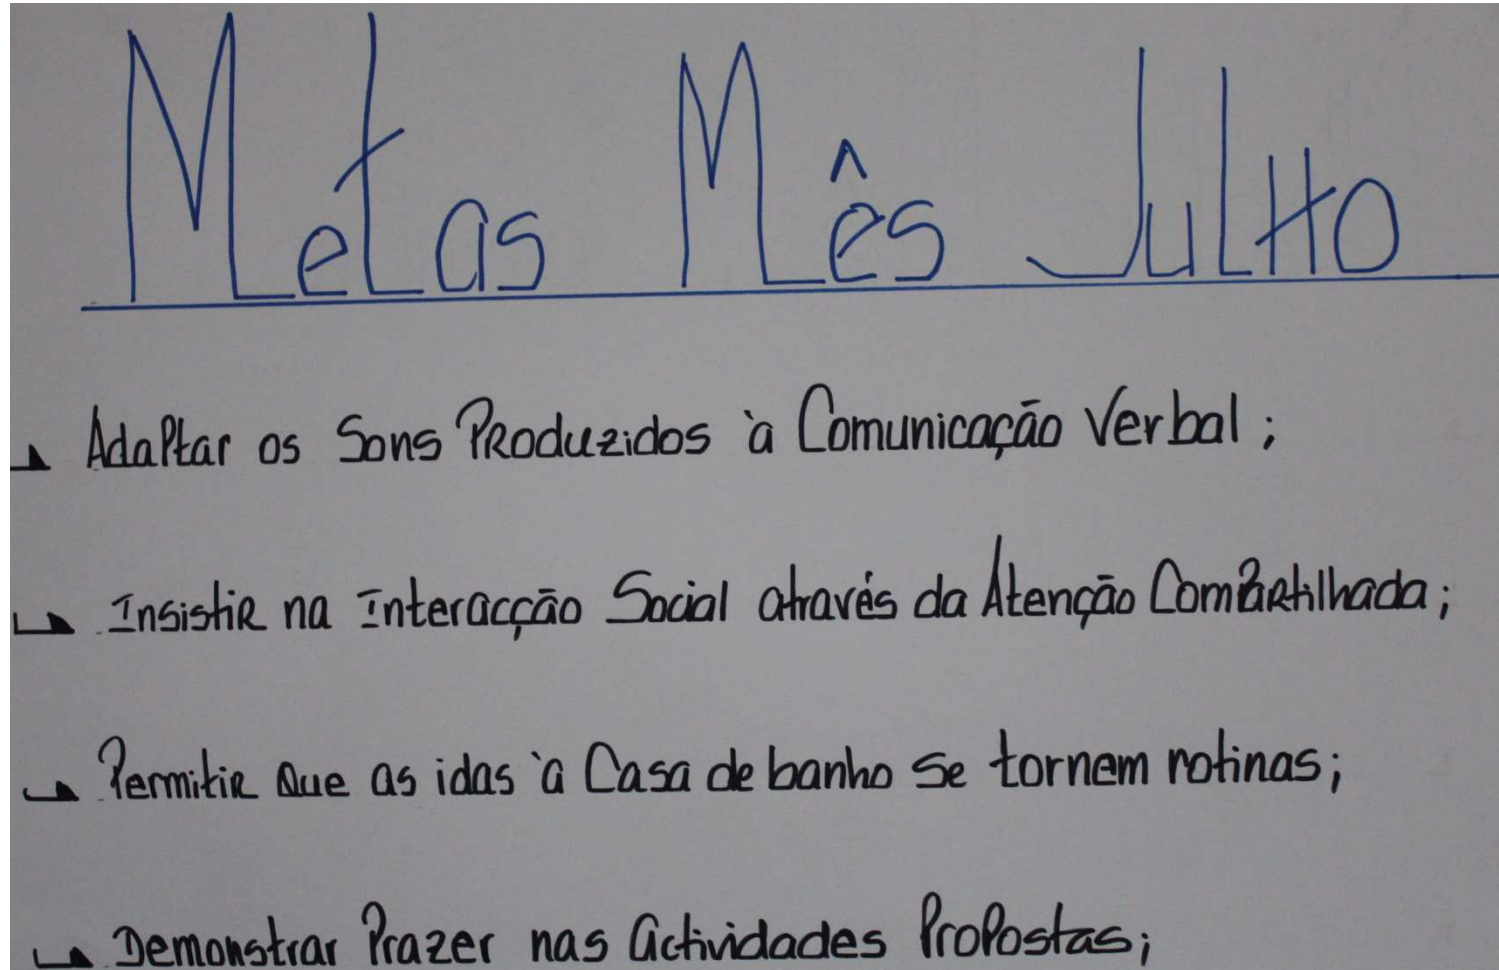 Metas Mês Julho
Adaptar os Sons Produzidos à Comunicação Verbal;
Insistir na Interacção Social através da Atenção Compartilhada;
Permitir que as idas à Casa de banho se tornem rotinas;
Demonstrar Prazer nas actividades Propostas;